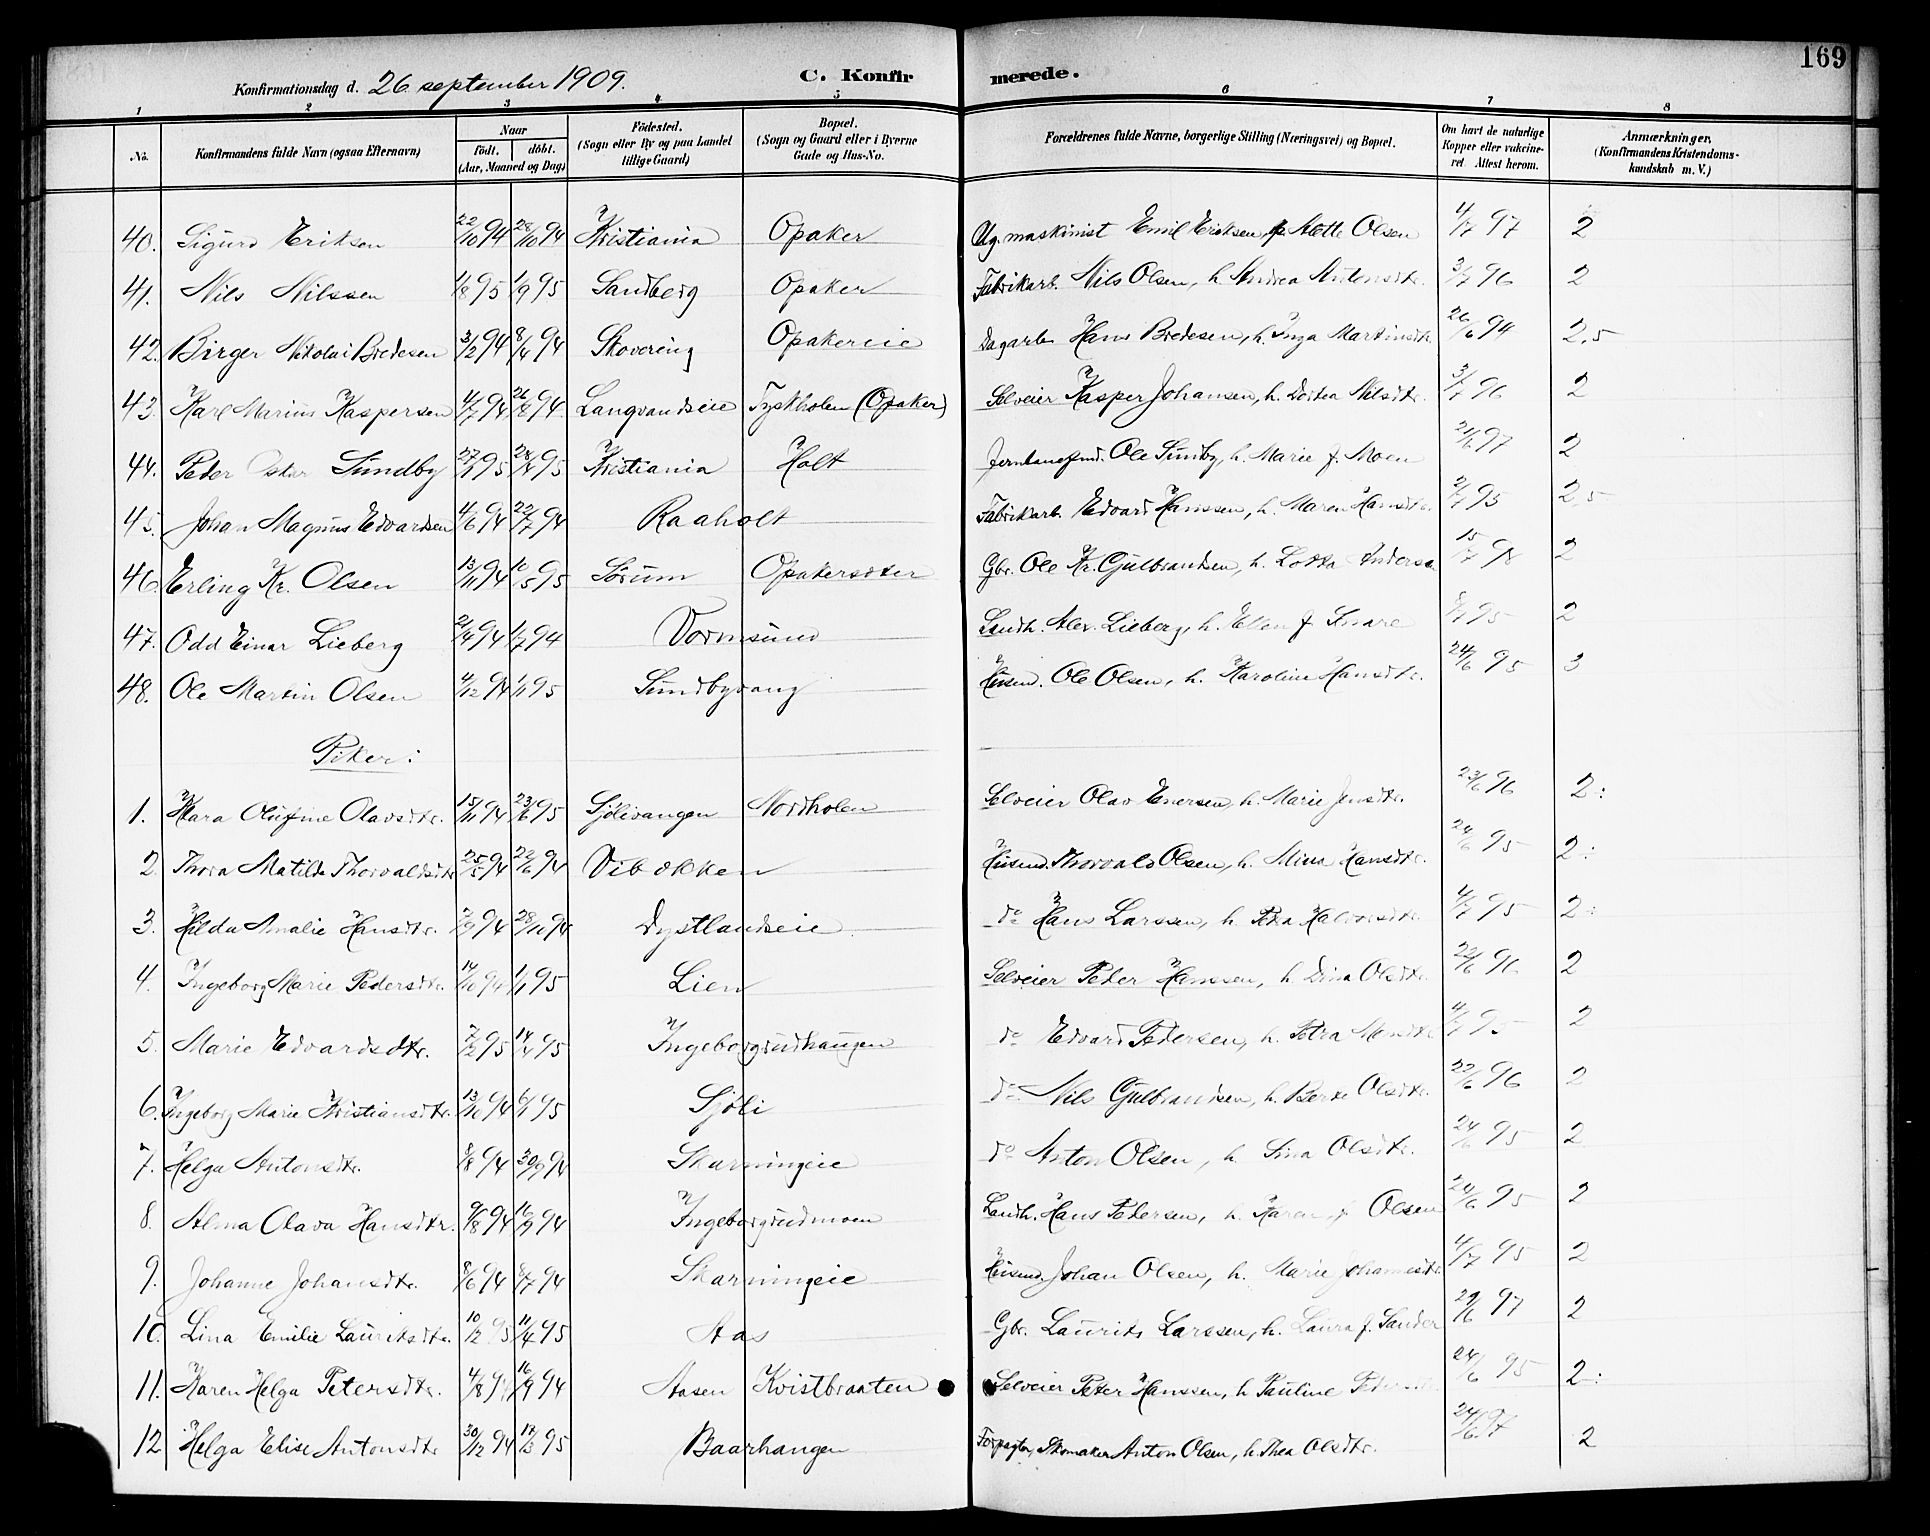 169
Konfirmationsdag d. 26 september 1909.
C. Konfirmerede.
1 2 3 4 5 6 7 8
No. Konfirmandens fulde Navn (ogsaa Efternavn) Naar født. døbt. (Aar, Maaned og Dag) Fødested. (Sogn eller By og paa Landet tillige Gaard) Bopæl. (Sogn og Gaard eller i Byerne Gade og Hus-No. Forældrenes fulde Navne, borgerlige Stilling (Næringsvei) og Bopæl. Om havt de naturlige Kopper eller vakcineret. Attest herom. Anmærkninger, (Konfirmandens Kristendomskundskab m. V.)
40. Sigurd Eriksen 22/10 94 28/10 94 Kristiania Opaker maskinist Emil Eriksen Olsen 4/7 97 2
41. Nils Nilssen 1/8 95 1/9 95 Sandberg Opaker Fabrikarb. Nils Olsen, h. Andrea Antonsdtr. 3/7 96 2
42. Birger Nikolai Bredesen 3/2 94 8/4 94 Skovering Opakereie Dagarb. Hans Bredesen, h. Inga Martinsdtr. 26/6 94 2,5
43. Karl Marius Kaspersen 4/7 94 26/8 94 Langvandseie Tyskholen (Opaker) Selveier Kasper Johansen, h. Dortea Nilsdtr. 3/7 96 2
44. Peder Oskar Sundby 27/1 95 28/4 95 Kristiania Holt Ole Sundby, h. Marie f. Moen 21/6 97 2
45. Johan Magnus Edvardsen 4/6 94 22/7 94 Raaholt Fabrikarb. Edvard Hanssen, h. Maren Hansdtr. 2/7 95 2,5
46. Erling Kr. Olsen 13/11 94 10/5 95 Sørum Opakersæter Gbr. Ole Kr. Gulbrandsen, h. Lotta Anderse 15/7 98 2
47. Odd Einar Lieberg 21/4 94 1/7 94 Vormsund Landh. Alex. Lieberg, h. Ellen f. Snare 8/7 95 2
48. Ole Martin Olsen 4/12 94 1/1 95 Sundbyvang Husmd. Ole Olsen, h. Karoline Hansdtr. 24/6 95 3
Piker:
1. Klara Olufine Olavsdtr. 15/11 94 23/6 95 Sjølivangen Nordholen Selveier Olav Enersen, h. Marie Jensdtr. 23/6 96 2:
2. Thora Matilde Thorvaldsdtr 25/5 94 22/6 94 Vibækken Husmd. Thorvald Olsen, h. Mina Hansdtr. 24/6 95 2:
3. Hilda Amalie Hansdtr. 7/9 94 28/10 94 Dystlandseie do Hans Larssen, h. Petra Halvorsdtr. 4/7 95 2:
4. Ingeborg Marie Pedersdtr. 14/10 94 1/1 95 Lien Selveier Peder Hanssen, h. Dina Olsdtr. 22/6 96 2
5. Marie Edvardsdtr. 7/2 95 14/4 95 Ingeborgrudhaugen do Edvard Pedersen, h. Petra Monsdtr 4/7 95 2
6. Ingeborg Marie Kristiansdtr. 13/10 94 6/1 95 Sjøli do Nils Gulbrandsen, h. Berte Olsdtr. 22/6 96 2
7. Helga Antonsdtr. 8/8 94 30/9 94 Skarningeie do Anton Olsen, h. Lina Olsdtr. 24/6 95 2
8. Alma Olava Hansdtr. 9/8 94 16/9 94 Ingeborgrudmoen Landh. Hans Pedersen, h. Karen f. Olsen 24/6 95 2
9. Johanne Johansdtr. 8/6 94 8/7 94 Skarningeie Husmd. Johan Olsen, h. Marie Johannesdtr. 4/7 95 2
10. Lina Emilie Lauritsdtr. 10/2 95 11/4 95 Aas Gbr. Laurits Larssen, h. Laura f. Sander 29/6 97 2
11. Karen Helga Petersdtr. 4/8 94 16/9 94 Aasen Kvistbraaten Selveier Peter Hanssen, h. Pauline 24/6 95 2:
12 Helga Elise Antonsdtr 30/12 94 17/3 95 Baarhaugen Forpagter, Skomaker Anton Olsen, h. Thea Olsdtr. 24/6 97 2